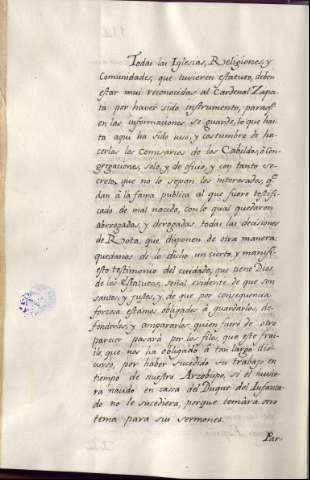 Todas las Iglesias, Religiones, y
Comunidades, que tuvieren estatuto, deben
estar mui reconocidas al Cardenal Zapa-
ta por haver sido instrumento, paraq̃
en las informaciones se guarde, lo que has-
ta aqui ha sido uso, y costumbre de ha-
cerlas los Comisarios de los Cabildos, ò Con-
gregaciones, solo, y de oficio, y con tanto se-
creto, que no lo sepan los interesados, q̃
dan à la fama publica al que fuere testifi-
cado de mal nacido, con lo qual quedaron
abrogadas, y derogadas todas las decisiones
de Rota, que disponen de otra manera:
quedanos de lo dicho un cierto, y manifi-
esto testimonio del cuidado, que tiene Dios
de los Estatutos, señal evidente de que son
santos, y justos, y de que por consequencia
forzosa estamos obligados à guardarlos, de-
fenderlos, y ampararlos: quien fuere de otro
parecer pasarà por los filos, que este frai-
le, que nos ha obligado à tan largo dis-
curso, por haber sucedido su trabajo en
tiempo de nuestro Arzobispo, si el huvie-
ra nacido en casa del Duque del Infanta-
do no le sucediera, porque tomàra otro
tema para sus sermones.
Par-